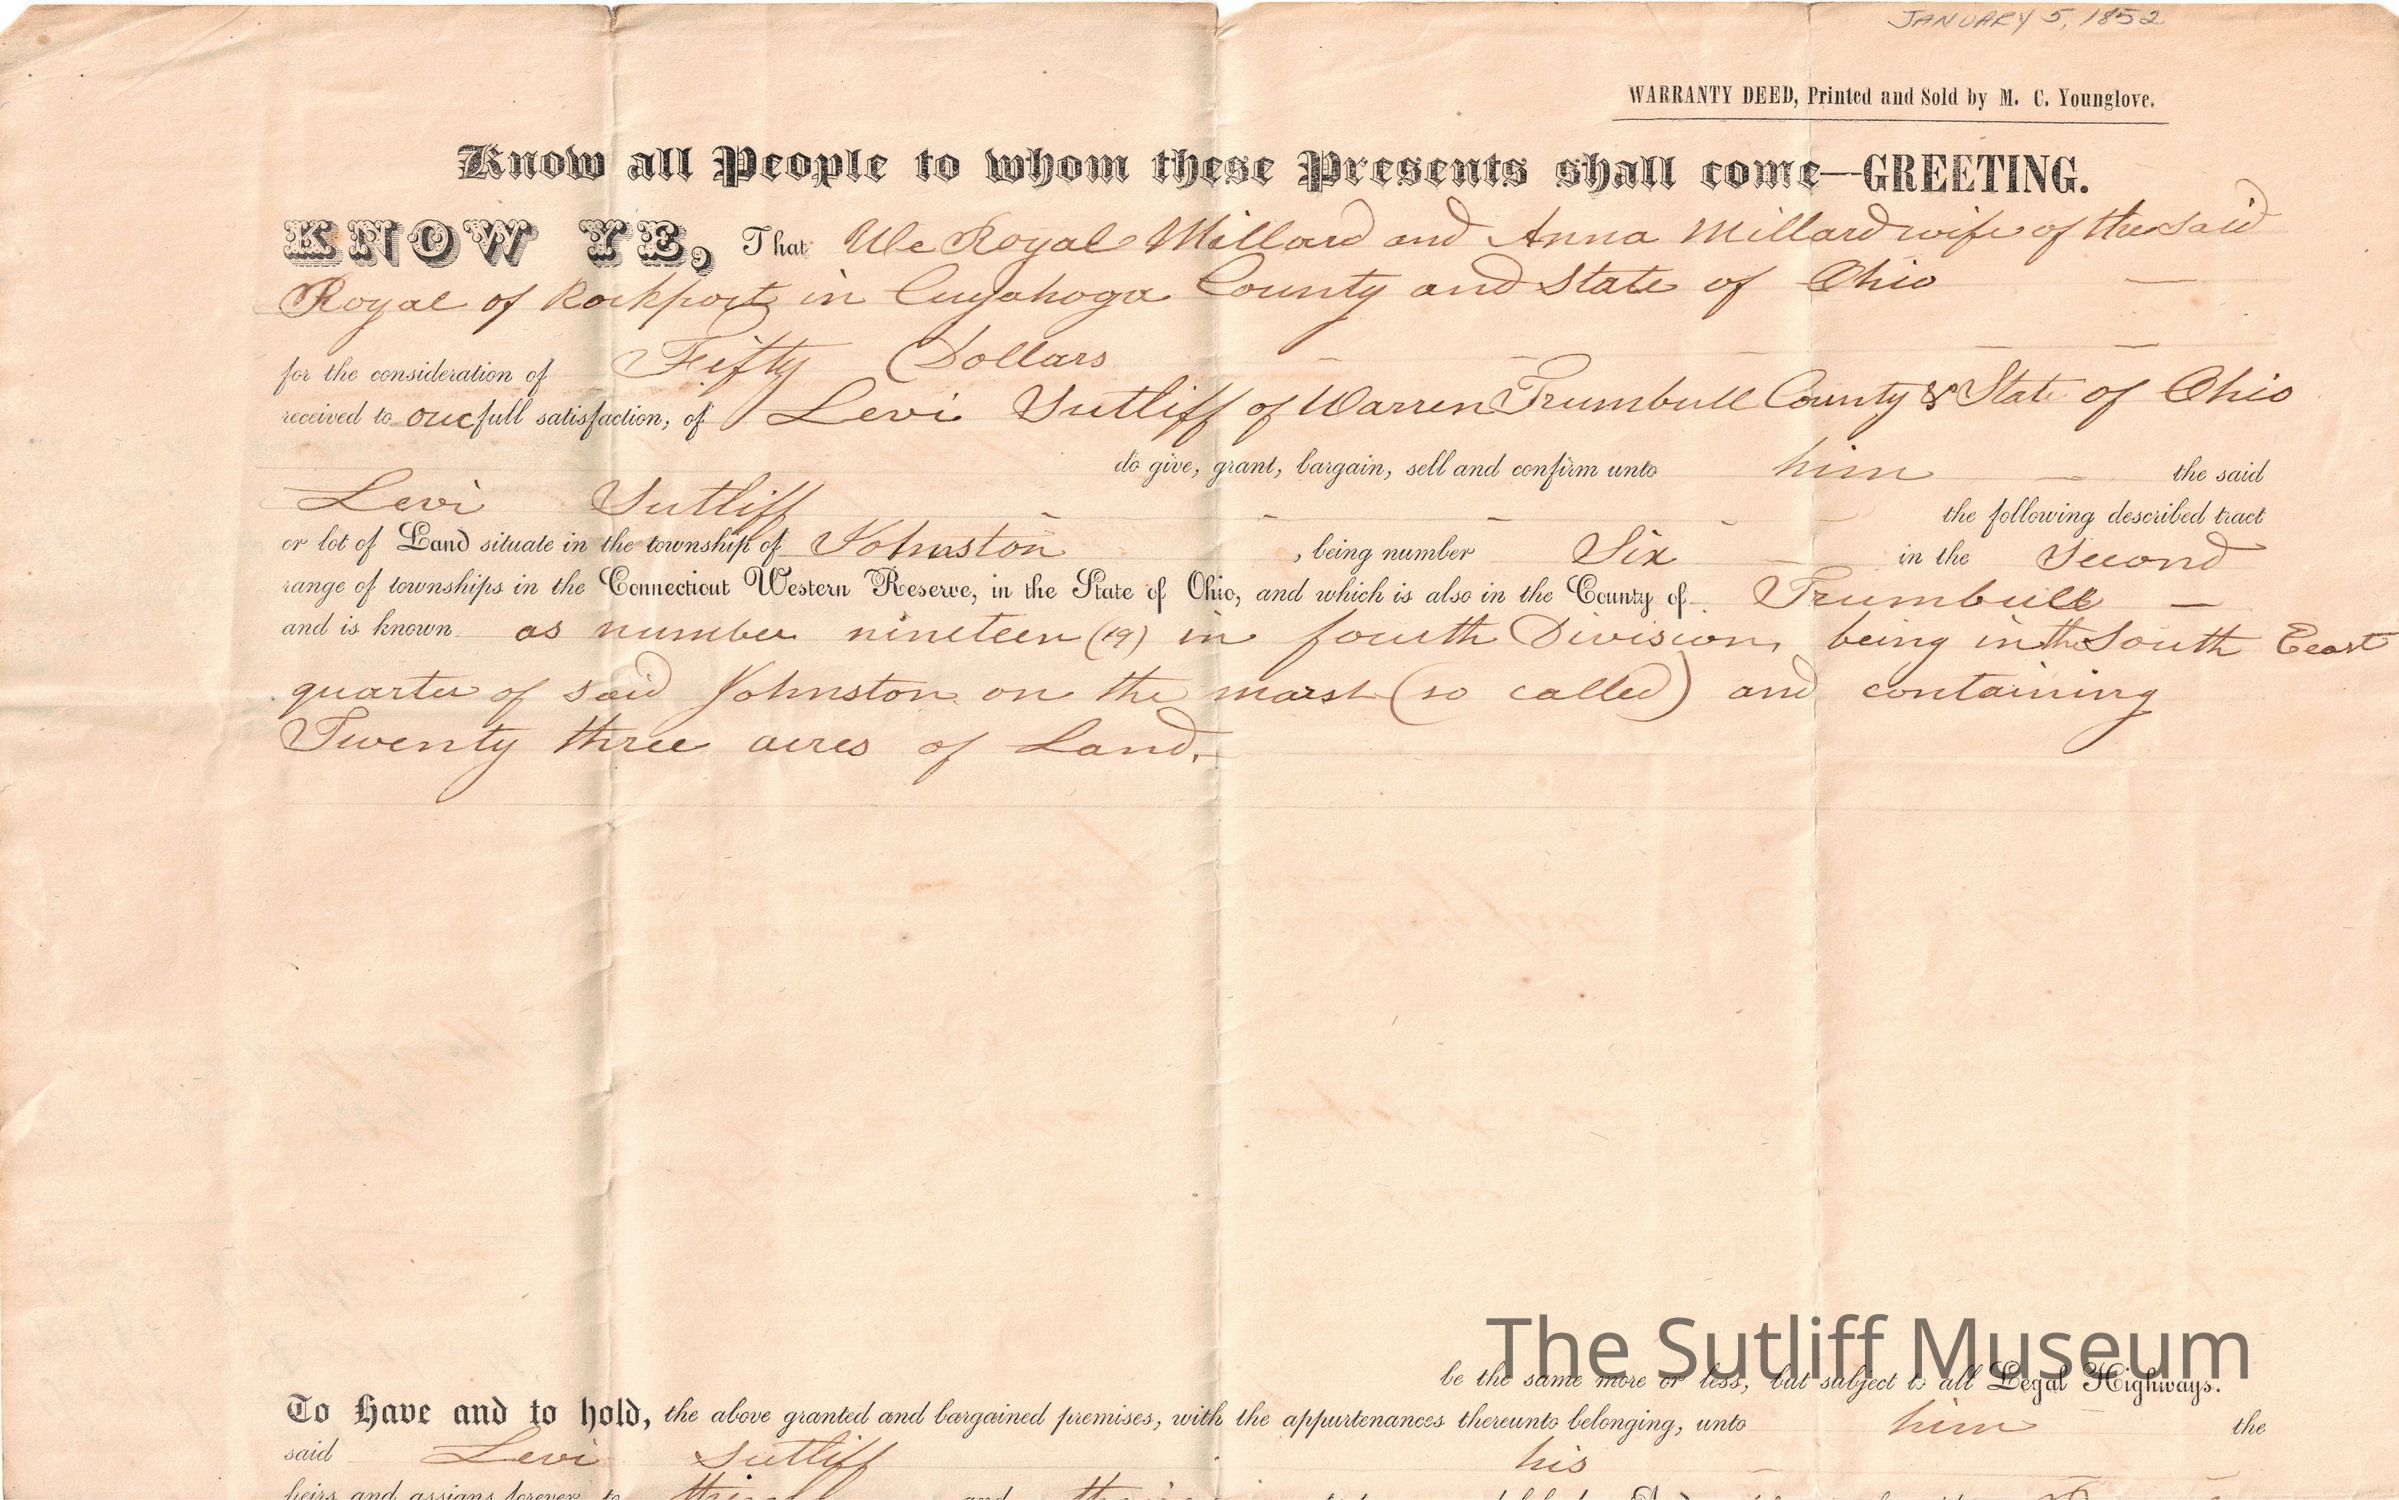 JANUARY 5, 1852
WARRANTY DEED, Printed and Sold by M. C. Younglove.
Know all People to whom these Presents shall come—GREETING.
KNOW YE, That We Royal Millard and Anna Millard wife of the said
Royal of Rockport in Cuyahoga County and State of Ohio
for the consideration of Fifty Dollars
received to our full satisfaction, of Levi Sutliff of Warren Trumbull County & State of Ohio
do give, grant, bargain, sell and confirm unto him the said
Levi Sutliff the following described tract
or lot of Land situate in the township of Johnston , being number Six in the Second
range of townships in the Connecticut Western Reserve, in the State of Ohio, and which is also in the County of Trumbull
and is known as number nineteen (19) in fourth Division, being in the South East
quarter of said Johnston on the marsh (so called) and containing
Twenty three acres of Land.
The Sutliff Museum
be the same more or less, but subject to all Legal Highways.
To Have and to hold, the above granted and bargained premises, with the appurtenances thereunto belonging, unto him the
said Levi Sutliff his
heirs and assigns forever, to and